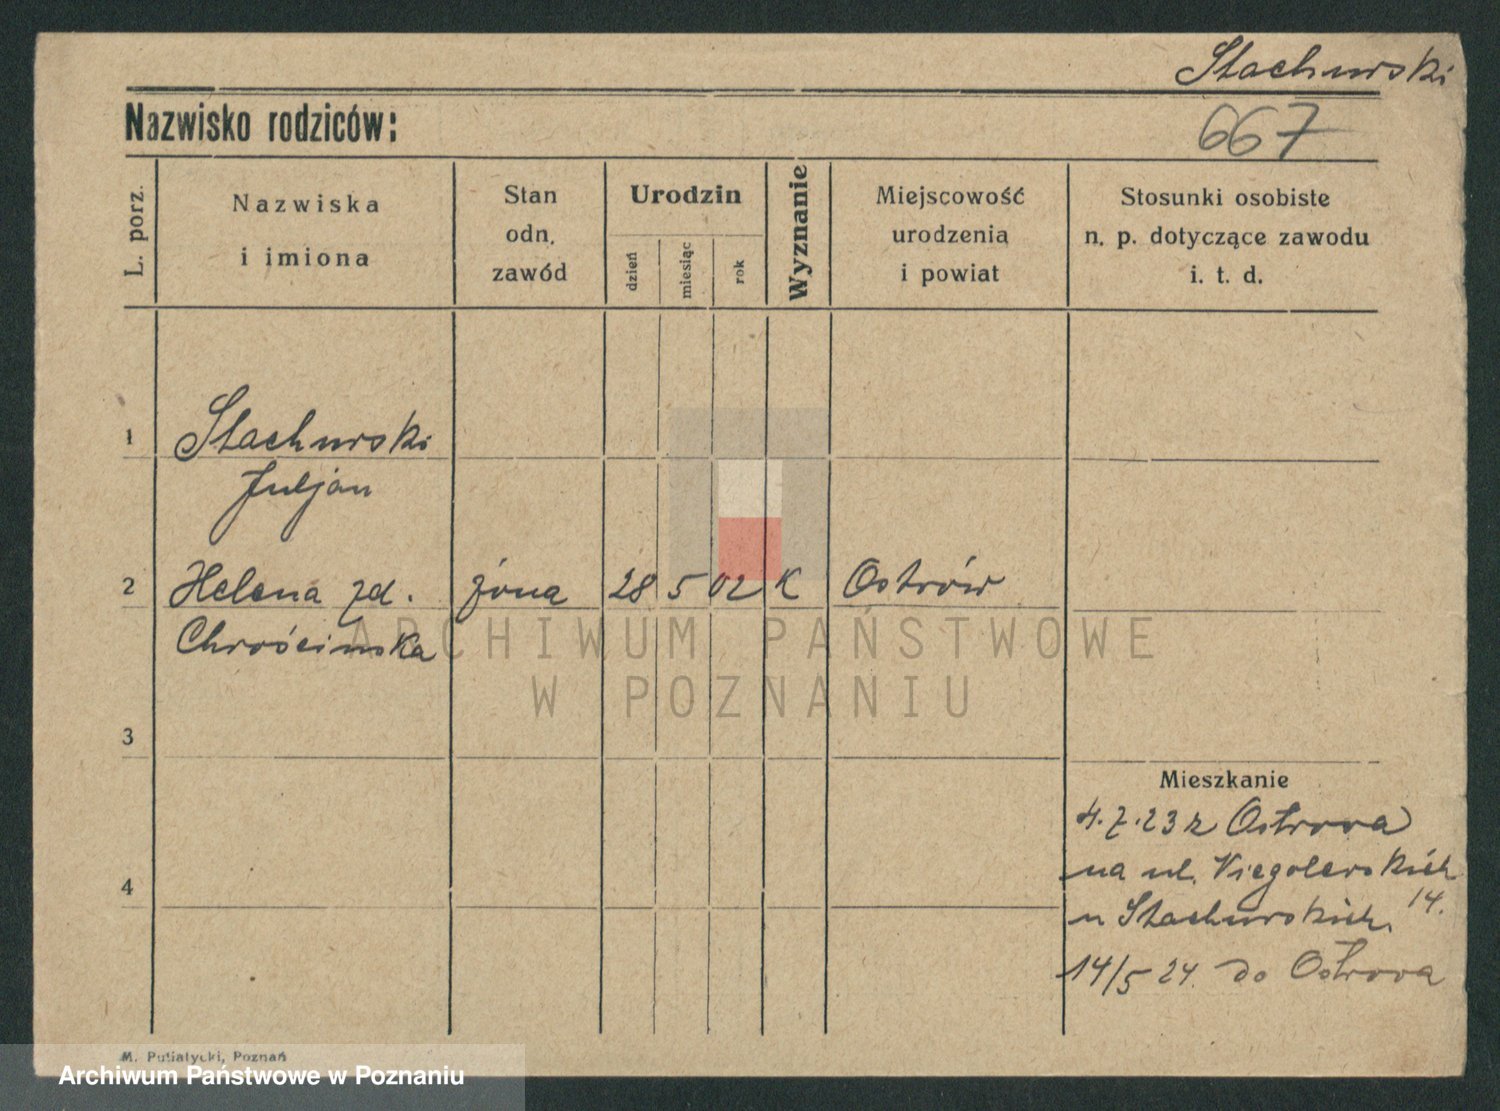 Stachurski
Nazwisko rodziców:
667
L. porz.
Nazwiska
i imiona
Stan
odn.
zawód
Urodzin
dzień
miesiąc
rok
Wyznanie
Miejscowość
urodzenia
i powiat
Stosunki osobiste
n. p. dotyczące zawodu
i. t. d.
1 Stachurski
Juljan
2 Helena zd. żona 28 5 02 K Ostrów
Chrościńska
ARCHIWUM PAŃSTWOWE
W POZNANIU
3
Mieszkanie
4.7.23 z Ostrowa
na ul.
14.
u Stachurskich.
4
14/5 24. do Ostrowa
M. Putiatycki, Poznań
Archiwum Państwowe w Poznaniu